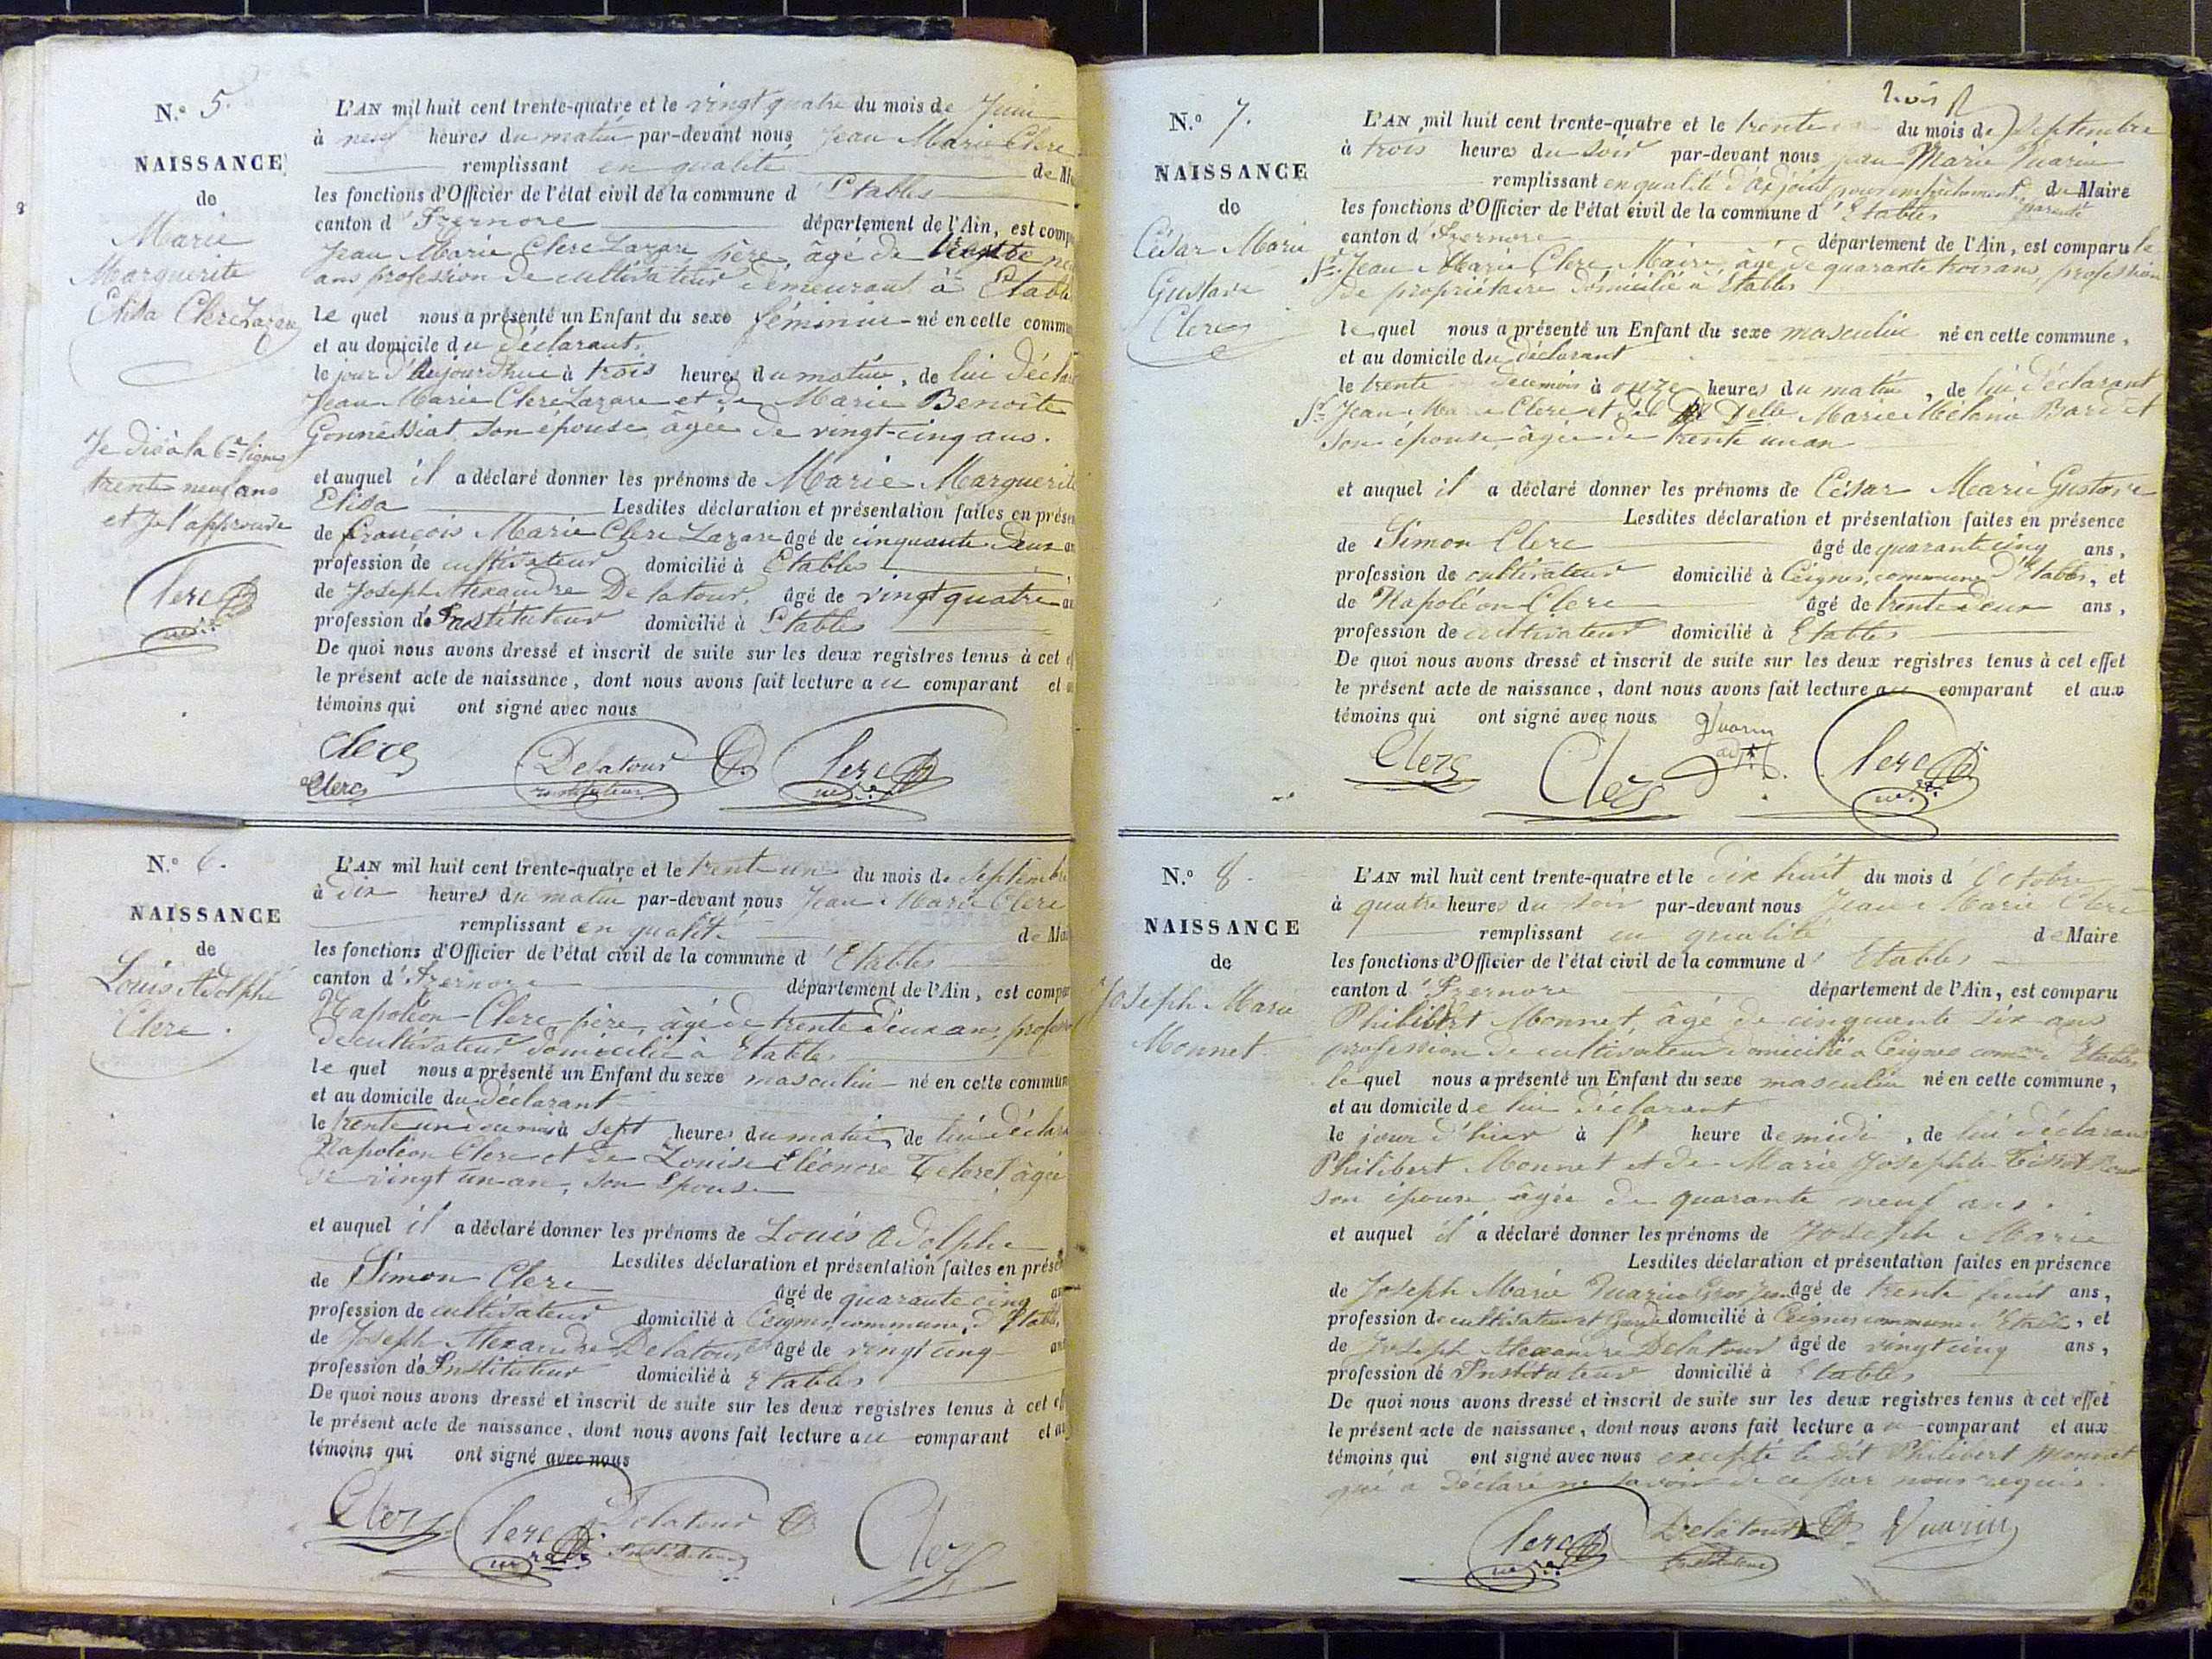 N.o 5.
NAISSANCE
de
Marie
Marguerite
Elisa Clerc Lazare
Je dis à la 6e ligne
trente neuf ans
et je l'approuve
Clerc
L'AN mil huit cent trente-quatre et le vingt quatre du mois de Juin
à neuf heures du matin par-devant nous Jean Marie Clerc
remplissant en qualité de Ma
les fonctions d'Officier de l'état civil de la commune d'Etables
canton d'Izernore département de l'Ain, est comp
Jean Marie Clerc Lazare père, âgé de trente ne
ans profession de cultivateur demeurant à Etabl
le quel nous a présenté un Enfant du sexe féminin né en cette commu
et au domicile du déclarant.
le jour d'Aujourd'hui à trois heures du matin, de lui décla
Jean Marie Clerc Lazare et de Marie Benoite
Gonnessiat son épouse âgée de vingt-cinq ans.
et auquel il a déclaré donner les prénoms de Marie Marguerite
Elisa Lesdites déclaration et présentation faites en prése
de François Marie Clerc Lazare âgé de cinquante deux an
profession de cultivateur domicilié à Etables
de Joseph Alexandre Delatour, âgé de vingt quatre an
profession d'Instituteur domicilié à Etables
De quoi nous avons dressé et inscrit de suite sur les deux registres tenus à cet e
le présent acte de naissance, dont nous avons fait lecture au comparant et a
témoins qui ont signé avec nous
Clerc Delatour Clerc
Clerc instituteur
N.o 6.
NAISSANCE
de
Louis Adolphe
Clerc.
L'AN mil huit cent trente-quatre et le trente un du mois de Septembre
à dix heures du matin par-devant nous Jean Marie Clerc
remplissant en qualité de Ma
les fonctions d'Officier de l'état civil de la commune d'Etables
canton d'Izernore département de l'Ain, est compa
Napoléon Clerc, père, âgé de trente deux ans, profession
de cultivateur domicilié à Etables
le quel nous a présenté un Enfant du sexe masculin né en cette commun
et au domicile du déclarant
le trente un du mois à sept heures du matin, de lui décla
Napoléon Clerc et de Louise Eléonore âgée
de vingt un an, son Epouse
et auquel il a déclaré donner les prénoms de Louis Adolphe
Lesdites déclaration et présentation faites en prése
de Simon Clerc âgé de quarante cinq an
profession de cultivateur domicilié à Ceignes, commune d'Etabl
de Joseph Alexandre Delatour âgé de vingt cinq an
profession d'Instituteur domicilié à Etables
De quoi nous avons dressé et inscrit de suite sur les deux registres tenus à cet ef
le présent acte de naissance, dont nous avons fait lecture au comparant et au
témoins qui ont signé avec nous
Clerc Clerc Delatour Clerc
Instituteur
N.o 7.
NAISSANCE
de
César Marie
Gustave
Clerc
L'AN mil huit cent trente-quatre et le trente du mois de Septembre
à trois heures du soir par-devant nous Jean Marie Vuarin
remplissant en qualité d'adjoint pour empêchement de parenté du Maire
les fonctions d'Officier de l'état civil de la commune d'Etables
canton d'Izernore département de l'Ain, est comparu le
Sr. Jean Marie Clerc Maire âgé de quarante trois ans, profession
de propriétaire domicilié à Etables
le quel nous a présenté un Enfant du sexe masculin né en cette commune,
et au domicile du déclarant
le trente du mois à onze heures du matin, de lui déclarant
Sr. Jean Marie Clerc et de Delle Marie Mélanie
son épouse âgée de trente un an
et auquel il a déclaré donner les prénoms de César Marie Gustave
Lesdites déclaration et présentation faites en présence
de Simon Clerc âgé de quarante cinq ans,
profession de cultivateur domicilié à Ceignes, commune d'Etables, et
de Napoléon Clerc âgé de trente deux ans,
profession de cultivateur domicilié à Etables
De quoi nous avons dressé et inscrit de suite sur les deux registres tenus à cet effet
le présent acte de naissance, dont nous avons fait lecture au comparant et aux
témoins qui ont signé avec nous
Clerc Clerc Vuarin adjt. Clerc
N.o 8.
NAISSANCE
de
Joseph Marie
Monnet.
L'AN mil huit cent trente-quatre et le dix huit du mois d'Octobre
à quatre heures du soir par-devant nous Jean Marie Clerc
remplissant en qualité de Maire
les fonctions d'Officier de l'état civil de la commune d'Etables
canton d'Izernore département de l'Ain, est comparu
Philibert Monnet, âgé de cinquante six ans
profession de cultivateur domicilié à Ceignes comne. d'Etables
le quel nous a présenté un Enfant du sexe masculin né en cette commune,
et au domicile de lui déclarant
le jour d'hier à heure de midi, de lui déclarant
Philibert Monnet et de Marie Josephte Tissot
son épouse âgée de quarante neuf ans.
et auquel il a déclaré donner les prénoms de Joseph Marie
Lesdites déclaration et présentation faites en présence
de Joseph Marie Vuarin Gros Jean âgé de trente huit ans,
profession de cultivateur et Garde domicilié à Ceignes commune d'Etables, et
de Joseph Alexandre Delatour âgé de vingt cinq ans,
profession d'Instituteur domicilié à Etables
De quoi nous avons dressé et inscrit de suite sur les deux registres tenus à cet effet
le présent acte de naissance, dont nous avons fait lecture au comparant et aux
témoins qui ont signé avec nous excepté le dit Philibert Monnet
qui a déclaré ne savoir de ce par nous requis.
Clerc Delatour Vuarin
Instituteur